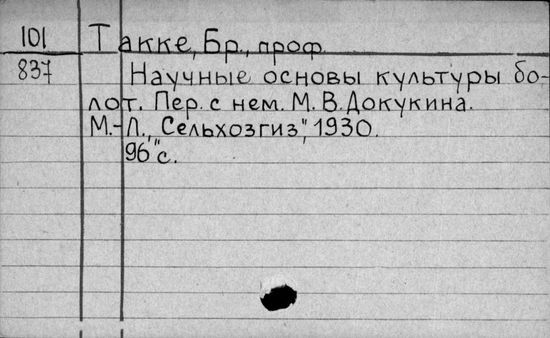 101 Такке, Бр., проф.
837 Научные основы культуры бо-
лот. Пер. с нем. М. В. Докукина.
М.-Л., "Сельхозгиз", 1930.
96 с.